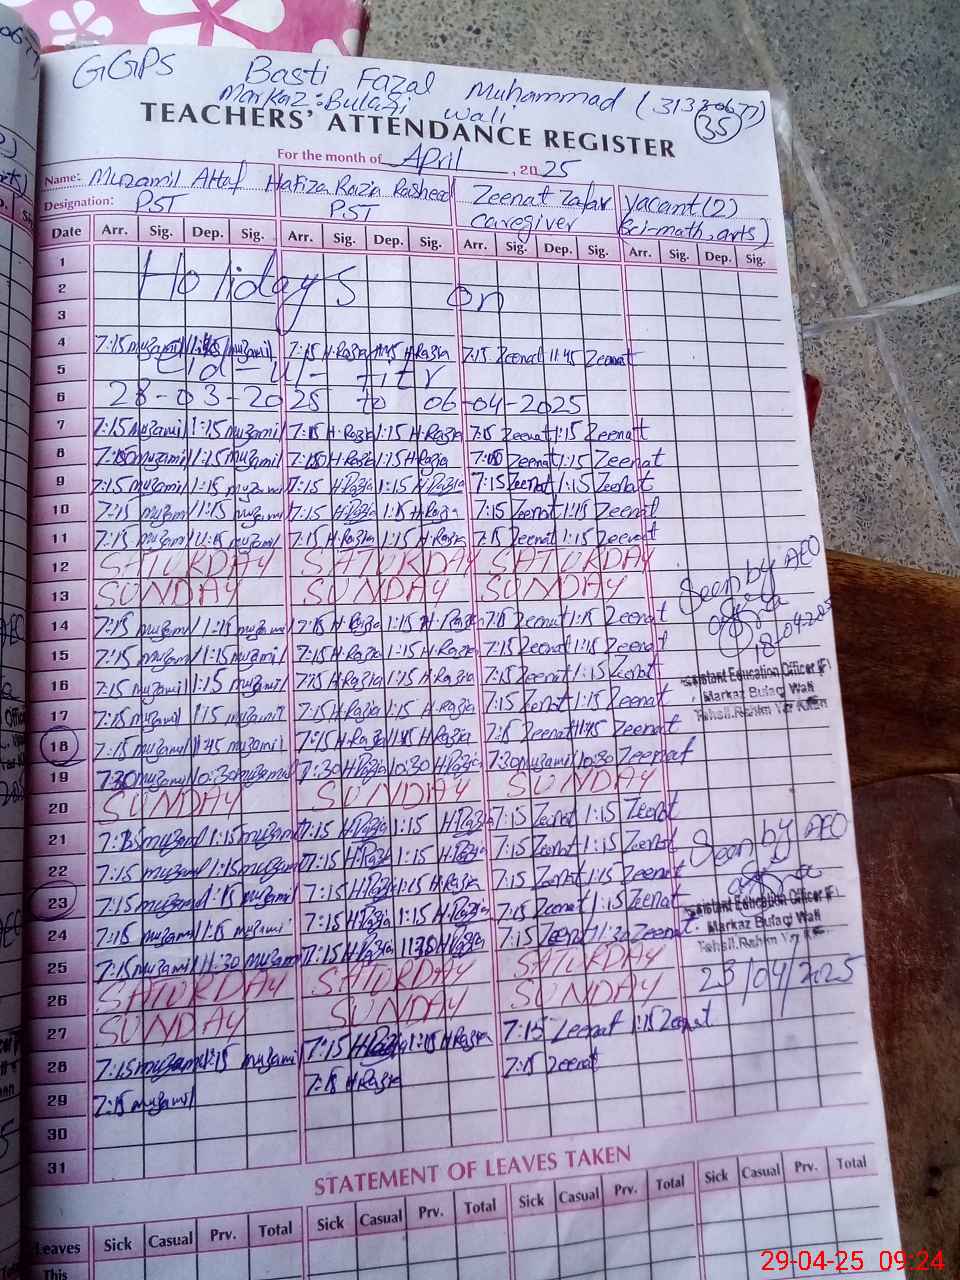 GGPS Basti Fazal Muhammad (31330677)
Markaz: Bulaqi Wali (35)
TEACHERS' ATTENDANCE REGISTER
For the month of April, 2025
Name: Muzamil Altaf Hafiza Razia Rasheed Zeenat Zafar Vacant (2)
Designation: PST PST Caregiver (Sci-math, arts)
Date Arr. Sig. Dep. Sig. Arr. Sig. Dep. Sig. Arr. Sig. Dep. Sig. Arr. Sig. Dep. Sig.
1
2 Holidays on
3
4 7:15 muzamil muzamil 7:15 H.Razia 11:45 H.Razia 7:15 Zeenat 11:45 Zeenat
5 Eid-ul-fitr
6 28-03-2025 to 06-04-2025
7 7:15 muzamil 1:15 muzamil 7:15 H.Razia 1:15 H.Razia 7:15 Zeenat 1:15 Zeenat
8 muzamil 1:15 muzamil H.Razia 1:15 H.Razia Zeenat 1:15 Zeenat
9 7:15 muzamil 1:15 muzamil 7:15 H.Razia 1:15 H.Razia 7:15 Zeenat 1:15 Zeenat
10 7:15 muzamil 1:15 muzamil 7:15 H.Razia 1:15 H.Razia 7:15 Zeenat 1:15 Zeenat
11 7:15 muzamil 1:15 muzamil 7:15 H.Razia 1:15 H.Razia 7:15 Zeenat 1:15 Zeenat
12 SATURDAY SATURDAY SATURDAY
13 SUNDAY SUNDAY SUNDAY Seen by AEO
14 7:15 muzamil 1:15 muzamil 7:15 H.Razia 1:15 H.Razia 7:15 Zeenat 1:15 Zeenat
18-04-2025
15 7:15 muzamil 1:15 muzamil 7:15 H.Razia 1:15 H.Razia 7:15 Zeenat 1:15 Zeenat
Assistant Education Officer (F)
16 7:15 muzamil 1:15 muzamil 7:15 H.Razia 1:15 H.Razia 7:15 Zeenat 1:15 Zeenat
Markaz Bulaqi Wali
17 7:15 muzamil 1:15 muzamil 7:15 H.Razia 1:15 H.Razia 7:15 Zenat 1:15 Zeenat
Tehsil. Rahim Yar Khan
18 7:15 muzamil 11:45 muzamil 7:15 H.Razia H.Razia 7:15 Zeenat 11:45 Zeenat
19 7:30 muzamil 10:30 muzamil 7:30 H.Razia 10:30 H.Razia 7:30 muzamil 10:30 Zeenat
20 SUNDAY SUNDAY SUNDAY
21 muzamil 1:15 muzamil 7:15 H.Razia 1:15 H.Razia 7:15 Zeenat 1:15 Zeenat
Seen by AEO
22 7:15 muzamil 1:15 muzamil 7:15 H.Razia 1:15 H.Razia 7:15 Zeenat 1:15 Zeenat
23 7:15 muzamil 1:15 muzamil 7:15 H.Razia 1:15 H.Razia 7:15 Zeenat 1:15 Zeenat
Assistant Education Officer (F)
24 7:15 muzamil 1:15 muzamil 7:15 H.Razia 1:15 H.Razia 7:15 Zeenat 1:15 Zeenat
Markaz Bulaqi Wali
25 7:15 muzamil 11:30 muzamil 7:15 H.Razia H.Razia 7:15 Zeenat 11:30 Zeenat
Tehsil. Rahim Y
26 SATURDAY SATURDAY SATURDAY 23/04/2025
27 SUNDAY SUNDAY SUNDAY
28 7:15 muzamil 1:15 muzamil 7:15 H.Razia 1:15 H.Razia 7:15 Zeenat 1:15 Zeenat
29 7:15 muzamil 7:15 H.Razia 7:15 Zeenat
30
31
STATEMENT OF LEAVES TAKEN
Leaves Sick Casual Prv. Total Sick Casual Prv. Total Sick Casual Prv. Total Sick Casual Prv. Total
This
29-04-25 09:24